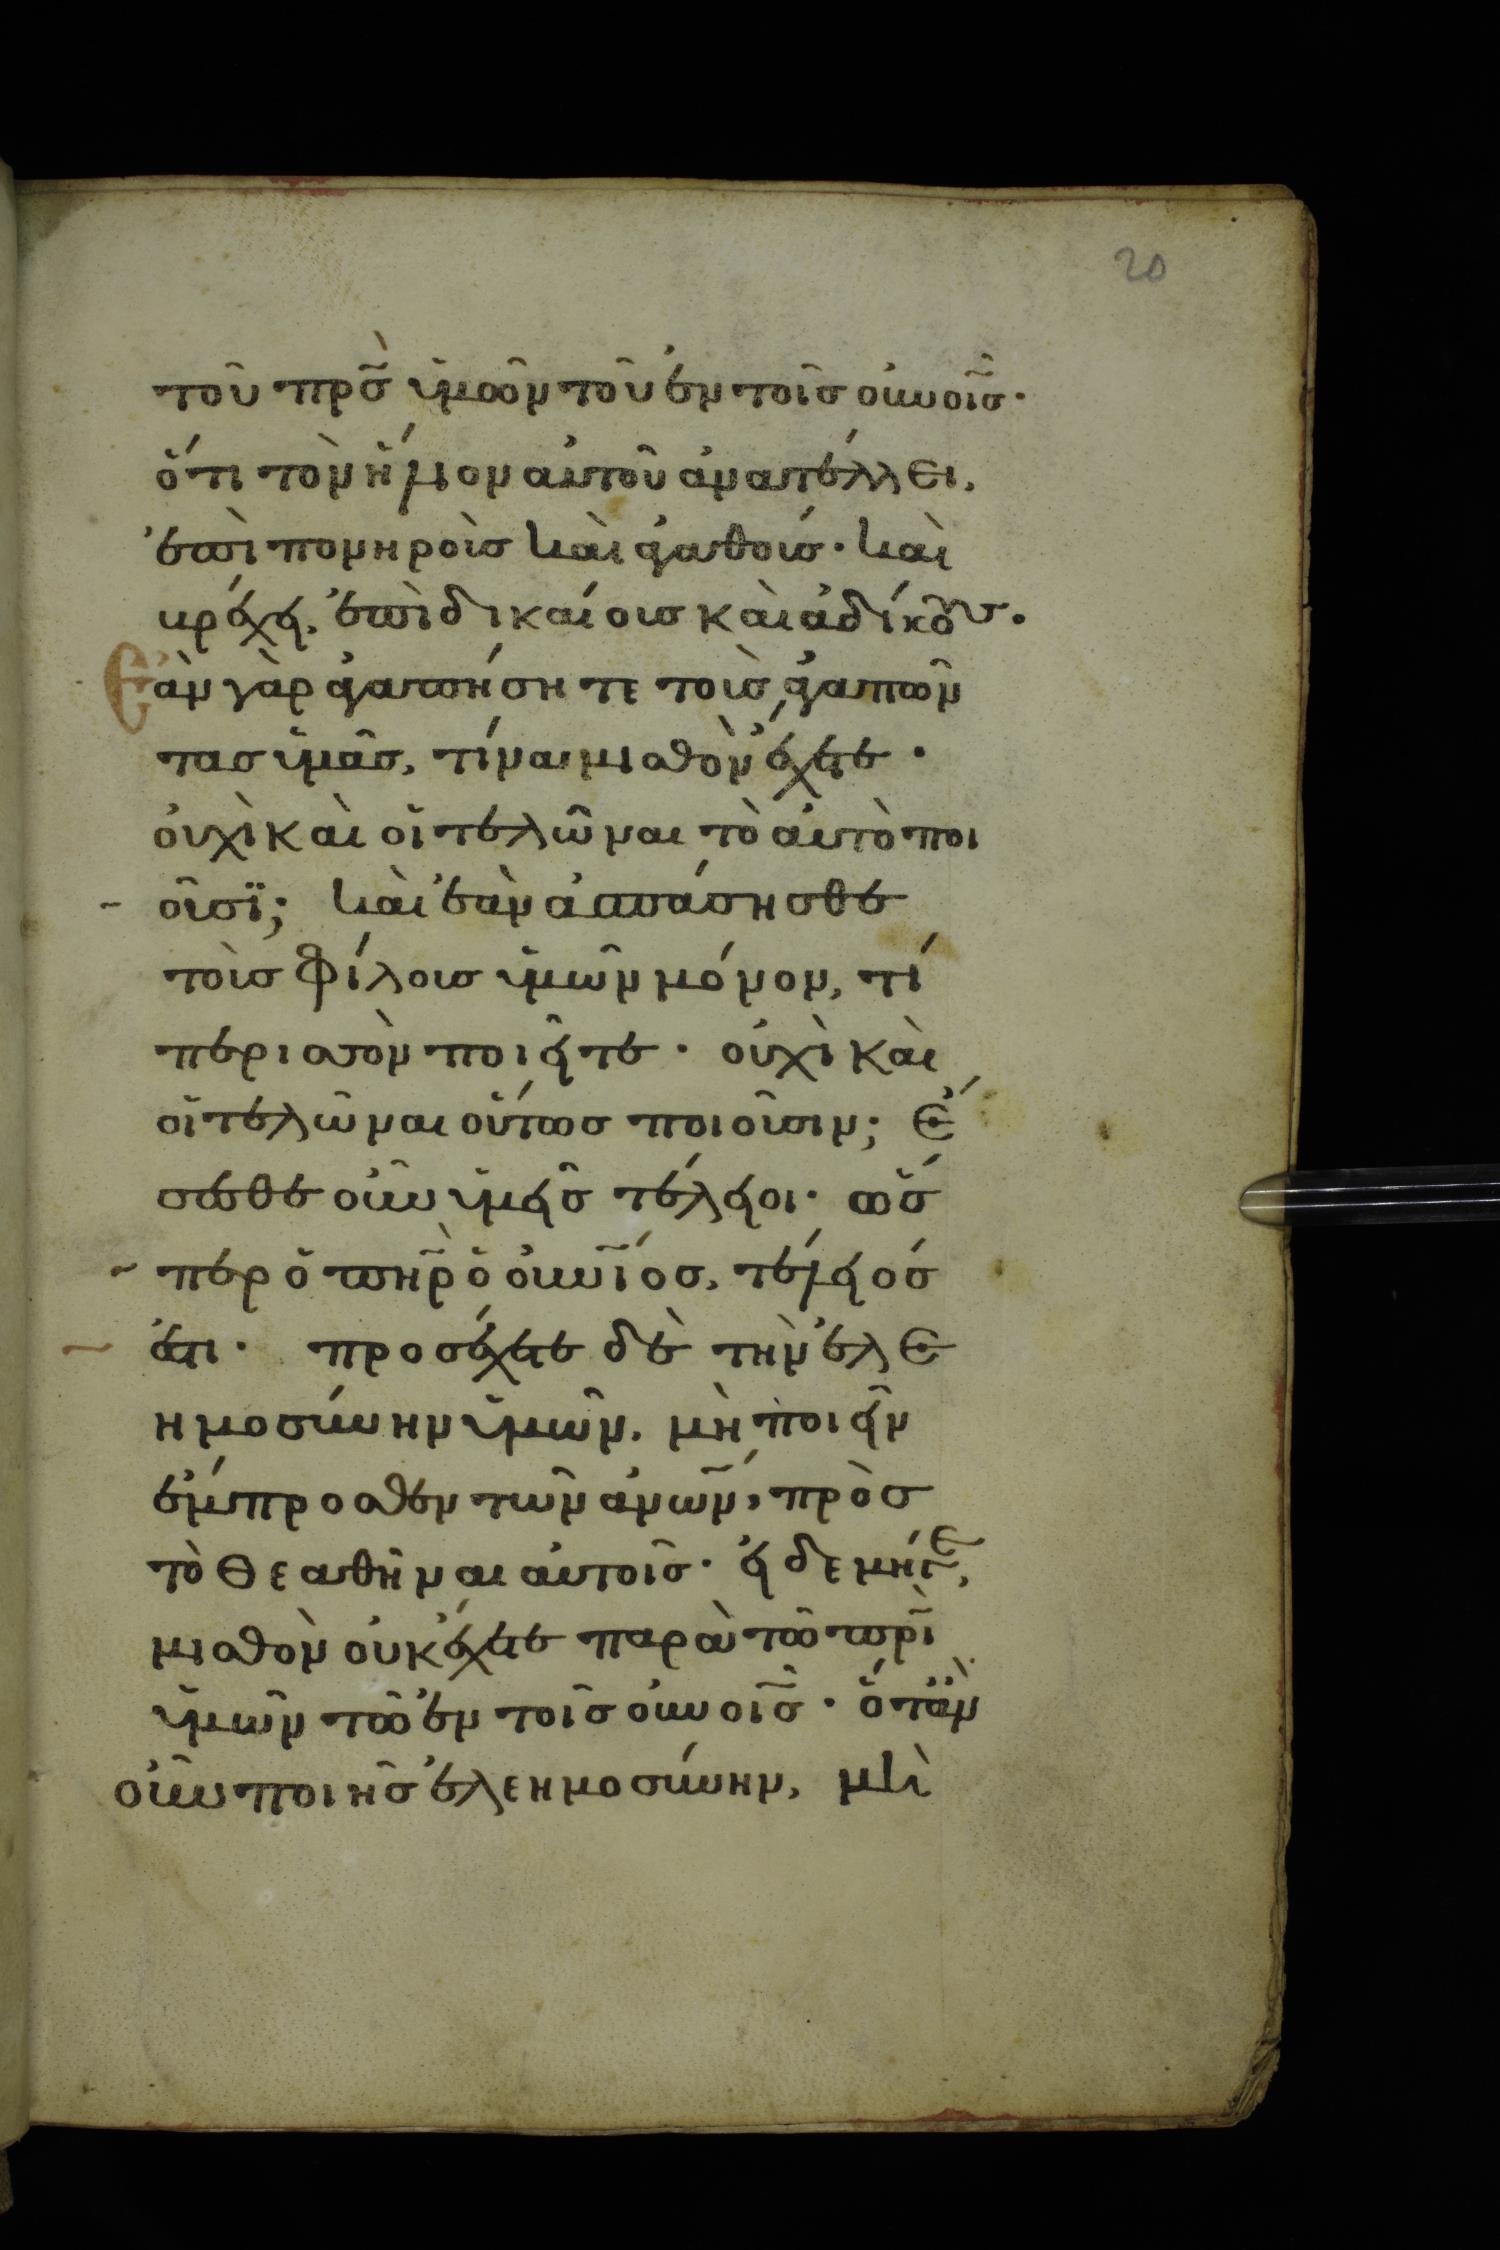 20
τοῦ πρ̅σ̀ ὑμῶν τοῦ ἐν τοῖς οὐνοῖς·
ὅτι τὸν ἥλιον αὐτοῦ ἀνατέλλει,
ἐπὶ πονηροὺς καὶ ἀγαθούς· καὶ
βρέχει, ἐπὶ δικαίους καὶ ἀδίκους.
Ἐὰν γὰρ ἀγαπήσητε τοὺς ἀγαπῶν
τας ὑμᾶς, τίνα μισθὸν ἔχετε·
οὐχὶ καὶ οἱ τελῶναι τὸ αὐτὸ ποι
οῦσϊ; καὶ ἐὰν ἀσπάσησθε
τοὺς φίλους ὑμῶν μόνον, τί
περισσὸν ποιεῖτε· οὐχὶ καὶ
οἱ τελῶναι οὕτως ποιοῦσιν; Ἔ
σεσθε οὖν ὑμεῖς τέλειοι· ὥσ
περ ὁ π̅η̅ρ̀ ὁ οὐν̅ιος, τέλειός
ἐστι· προσέχετε δὲ τὴν ἐλε
ημοσύνην ὑμῶν. μὴ ποιεῖν
ἔμπροσθεν τῶν ἀν̅ων̅, πρὸς
τὸ θεαθῆναι αὐτοῖς· εἰ δε μήγε,
μισθὸν οὐκ ἔχετε παρὰ τῶ π̅ρ̅ὶ
ὑμῶν τῶ ἐν τοῖς οὐνοῖς· ὅτἂν
οὖν ποιῆς ἐλεημοσύνην, μὴ